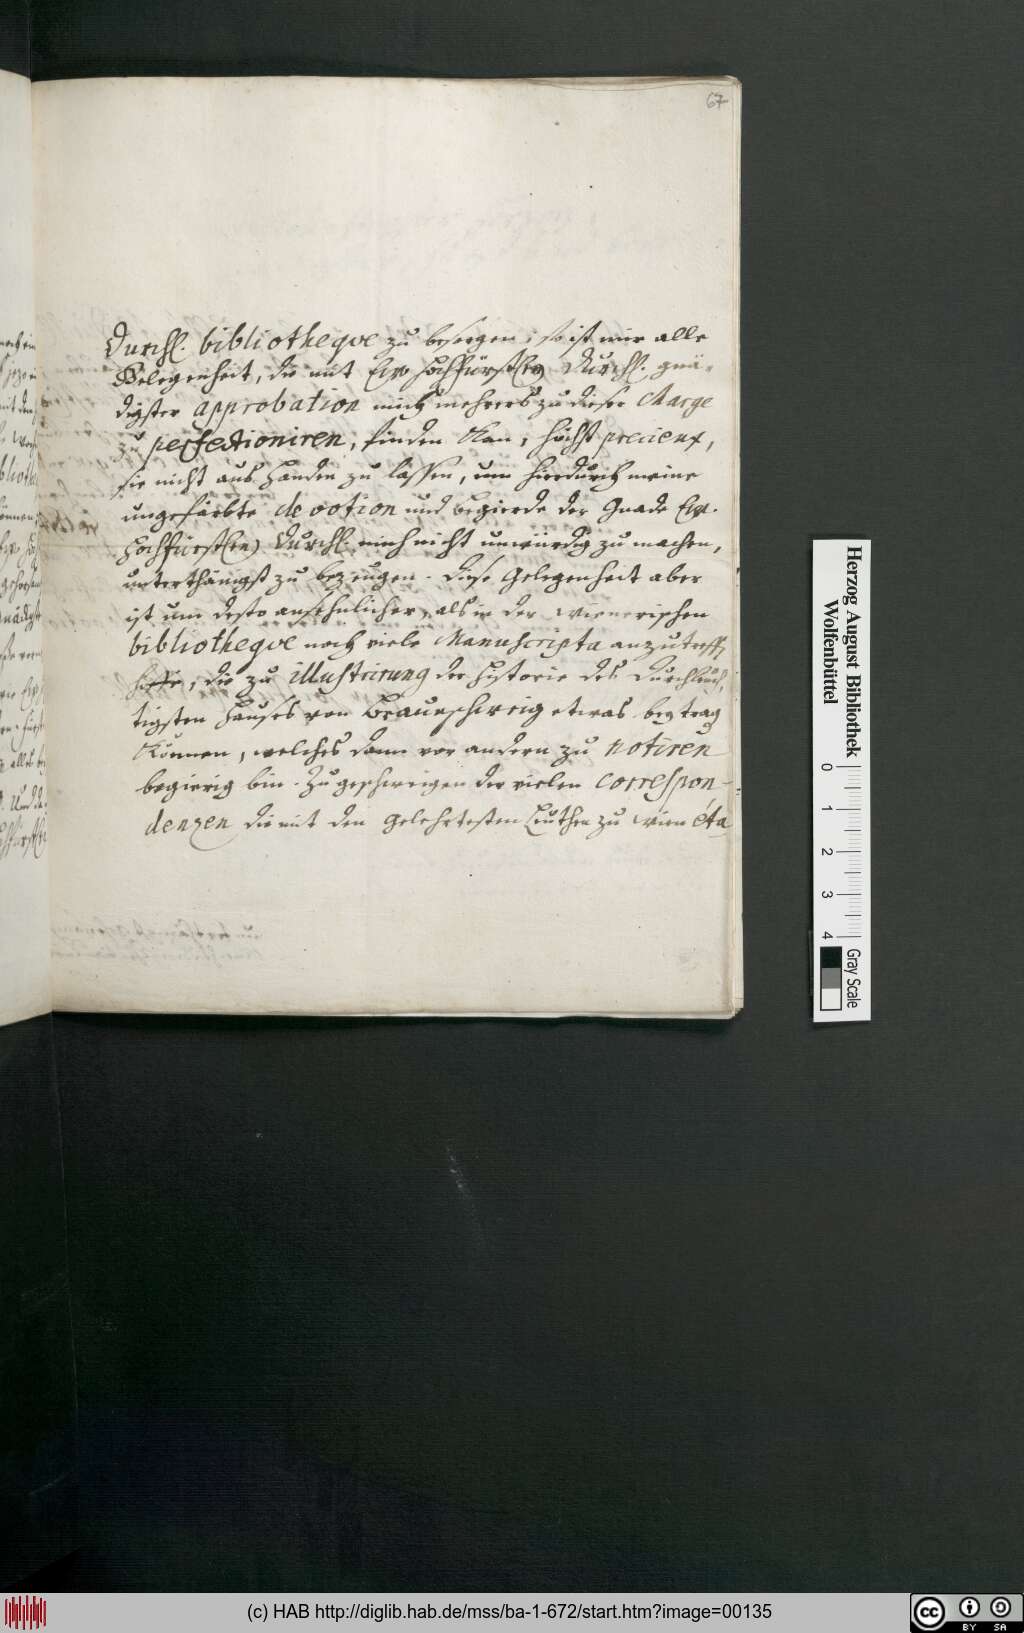 67
Durchl. bibliotheqve zu besorgen; so ist mir alle
Gelegenheit, die mit Ew. Hochfürstlen Durchl. gnä-
digster approbation mich mehrers zu dieser Charge
zu perfectioniren, finden kan, höchst precieux,
sie nicht aus Handen zu lassen, um hierdurch meine
ungefärbte devotion und begierde der Gnade Ew.
Hochfürstlen Durchl. mich nicht unwürdig zu machen,
unterthänigst zu bezeugen. Diese Gelegenheit aber
ist um desto ansehnlicher, als in der Wienerischen
bibliotheqve noch viele Manuscripta anzutreff
hoffe, die zu illustrirung der Historie des Durchleuch,
tigsten Hauses von Braunschweig etwas beytrag
können, welches dann vor andern zu notiren
begierig bin. Zu geschweigen der vielen correspon-
denzen die mit den Gelehrtesten Leuthen zu Wien éta
Herzog August Bibliothek
Wolfenbüttel
0 1 2 3 4
Gray Scale
(c) HAB http://diglib.hab.de/mss/ba-1-672/start.htm?image=00135
cc BY SA